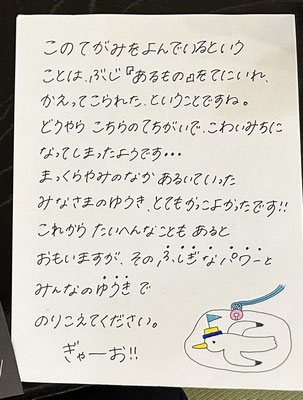 このてがみをよんでいるという
ことは、ぶじ『あるもの』をてにいれ、
かえってこられた、ということですね。
どうやら こちらのてちがいで、こわいみちに
なってしまったようです・・・
まっくらやみのなか あるいていった
みなさまのゆうき、とてもかっこよかったです!!
これから たいへんなことも あると
おもいますが、その、ふしぎなパワーと
みんなのゆうき で
のりこえてください。
ぎゃーお!!